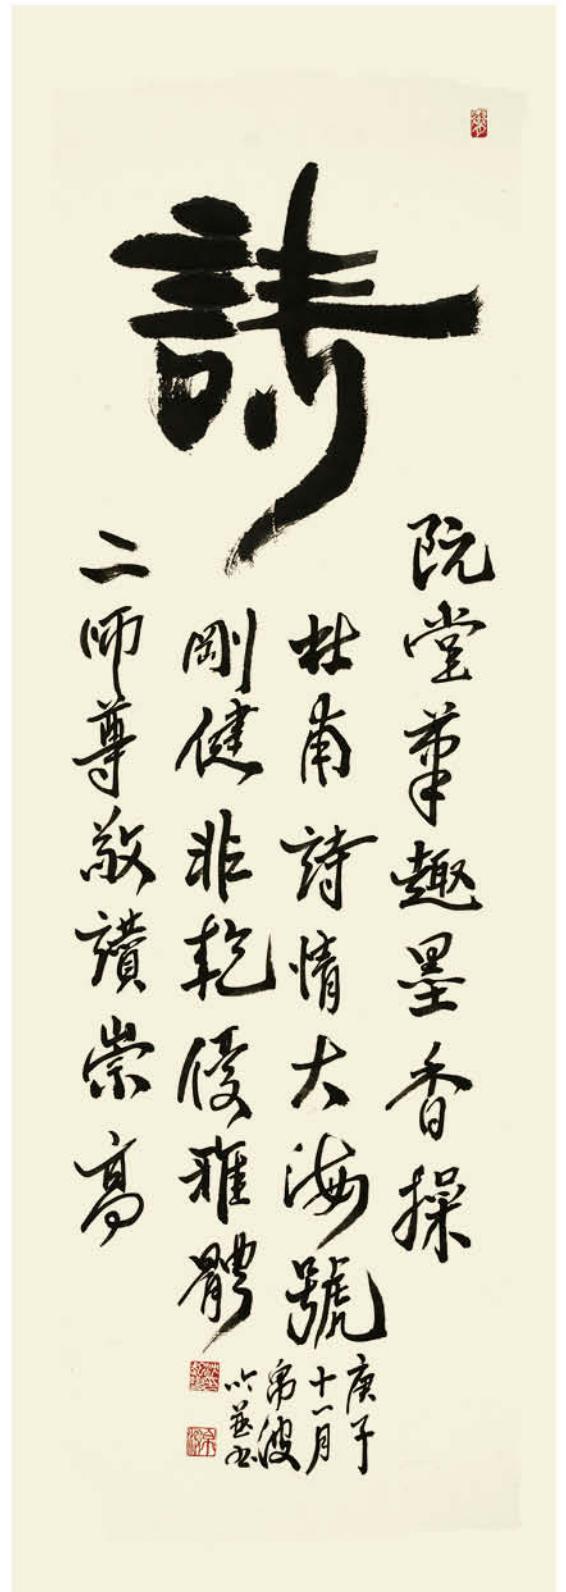 詩
阮堂筆趣墨香操
杜甫詩情大海號
剛健非乾優雅體
二師尊敬讚崇高
庚子
十一月
波
吟並書